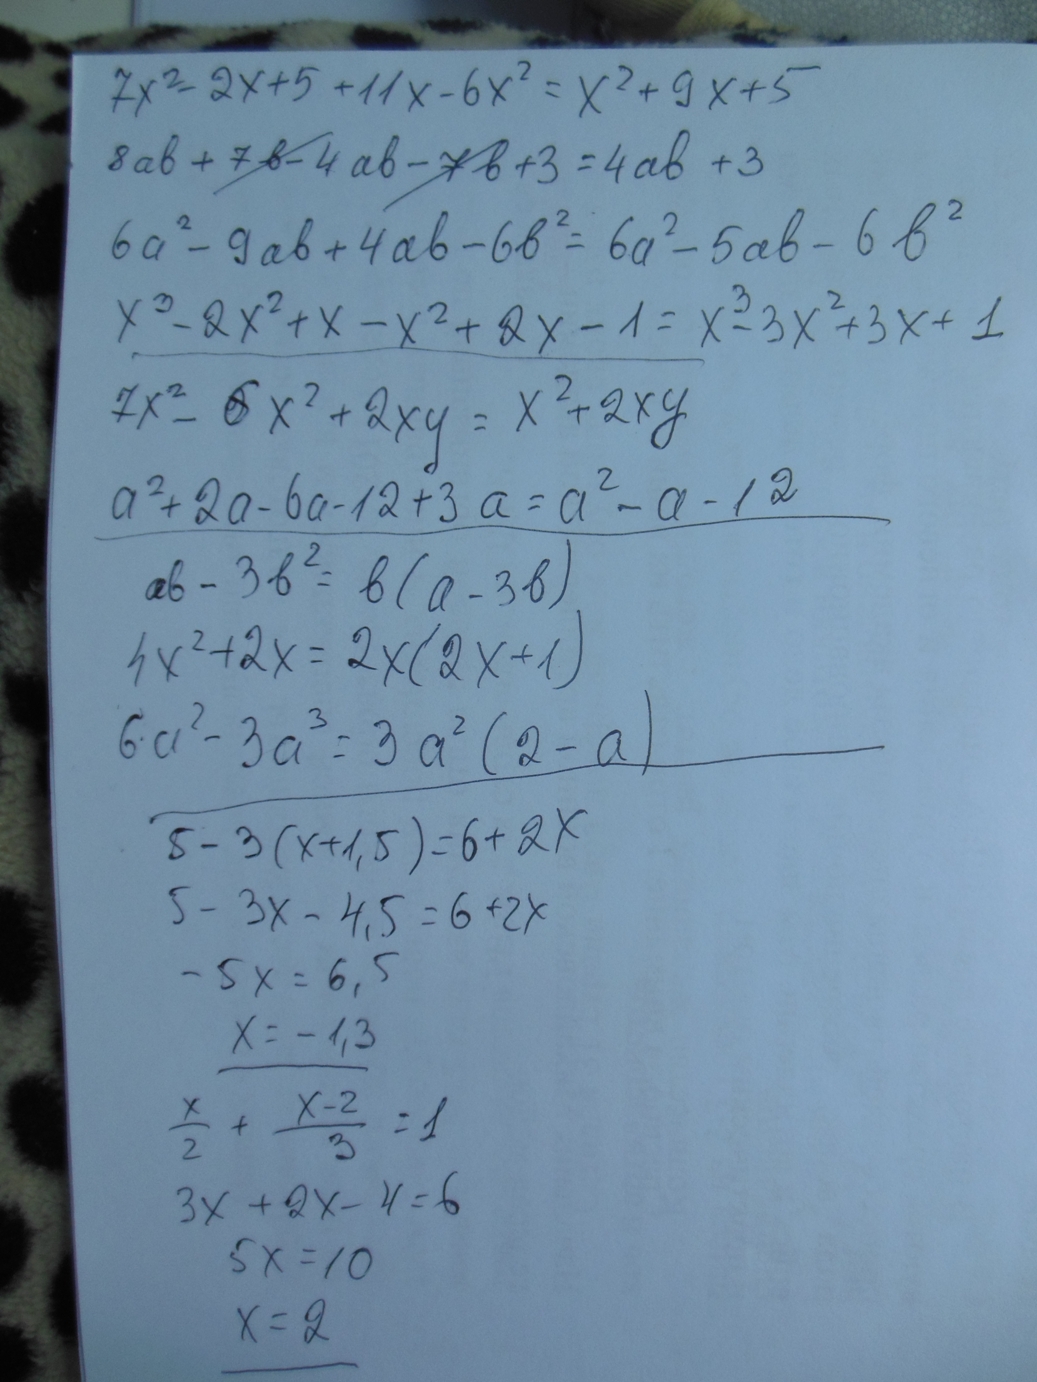 7x² - 2x + 5 + 11x - 6x² = x² + 9x + 5
8ab + 7b - 4ab - 7b + 3 = 4ab + 3
6a² - 9ab + 4ab - 6b² = 6a² - 5ab - 6b²
x³ - 2x² + x - x² + 2x - 1 = x³ - 3x² + 3x + 1
7x² - 6x² + 2xy = x² + 2xy
a² + 2a - 6a - 12 + 3a = a² - a - 12
ab - 3b² = b(a - 3b)
4x² + 2x = 2x(2x + 1)
6a² - 3a³ = 3a²(2 - a)
5 - 3(x + 1,5) = 6 + 2x
5 - 3x - 4,5 = 6 + 2x
-5x = 6,5
x = -1,3
x/2 + (x-2)/3 = 1
3x + 2x - 4 = 6
5x = 10
x = 2